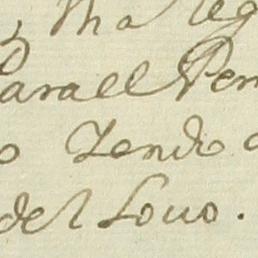 , tha leg
Parall Pen
o Tendo
del Louo.